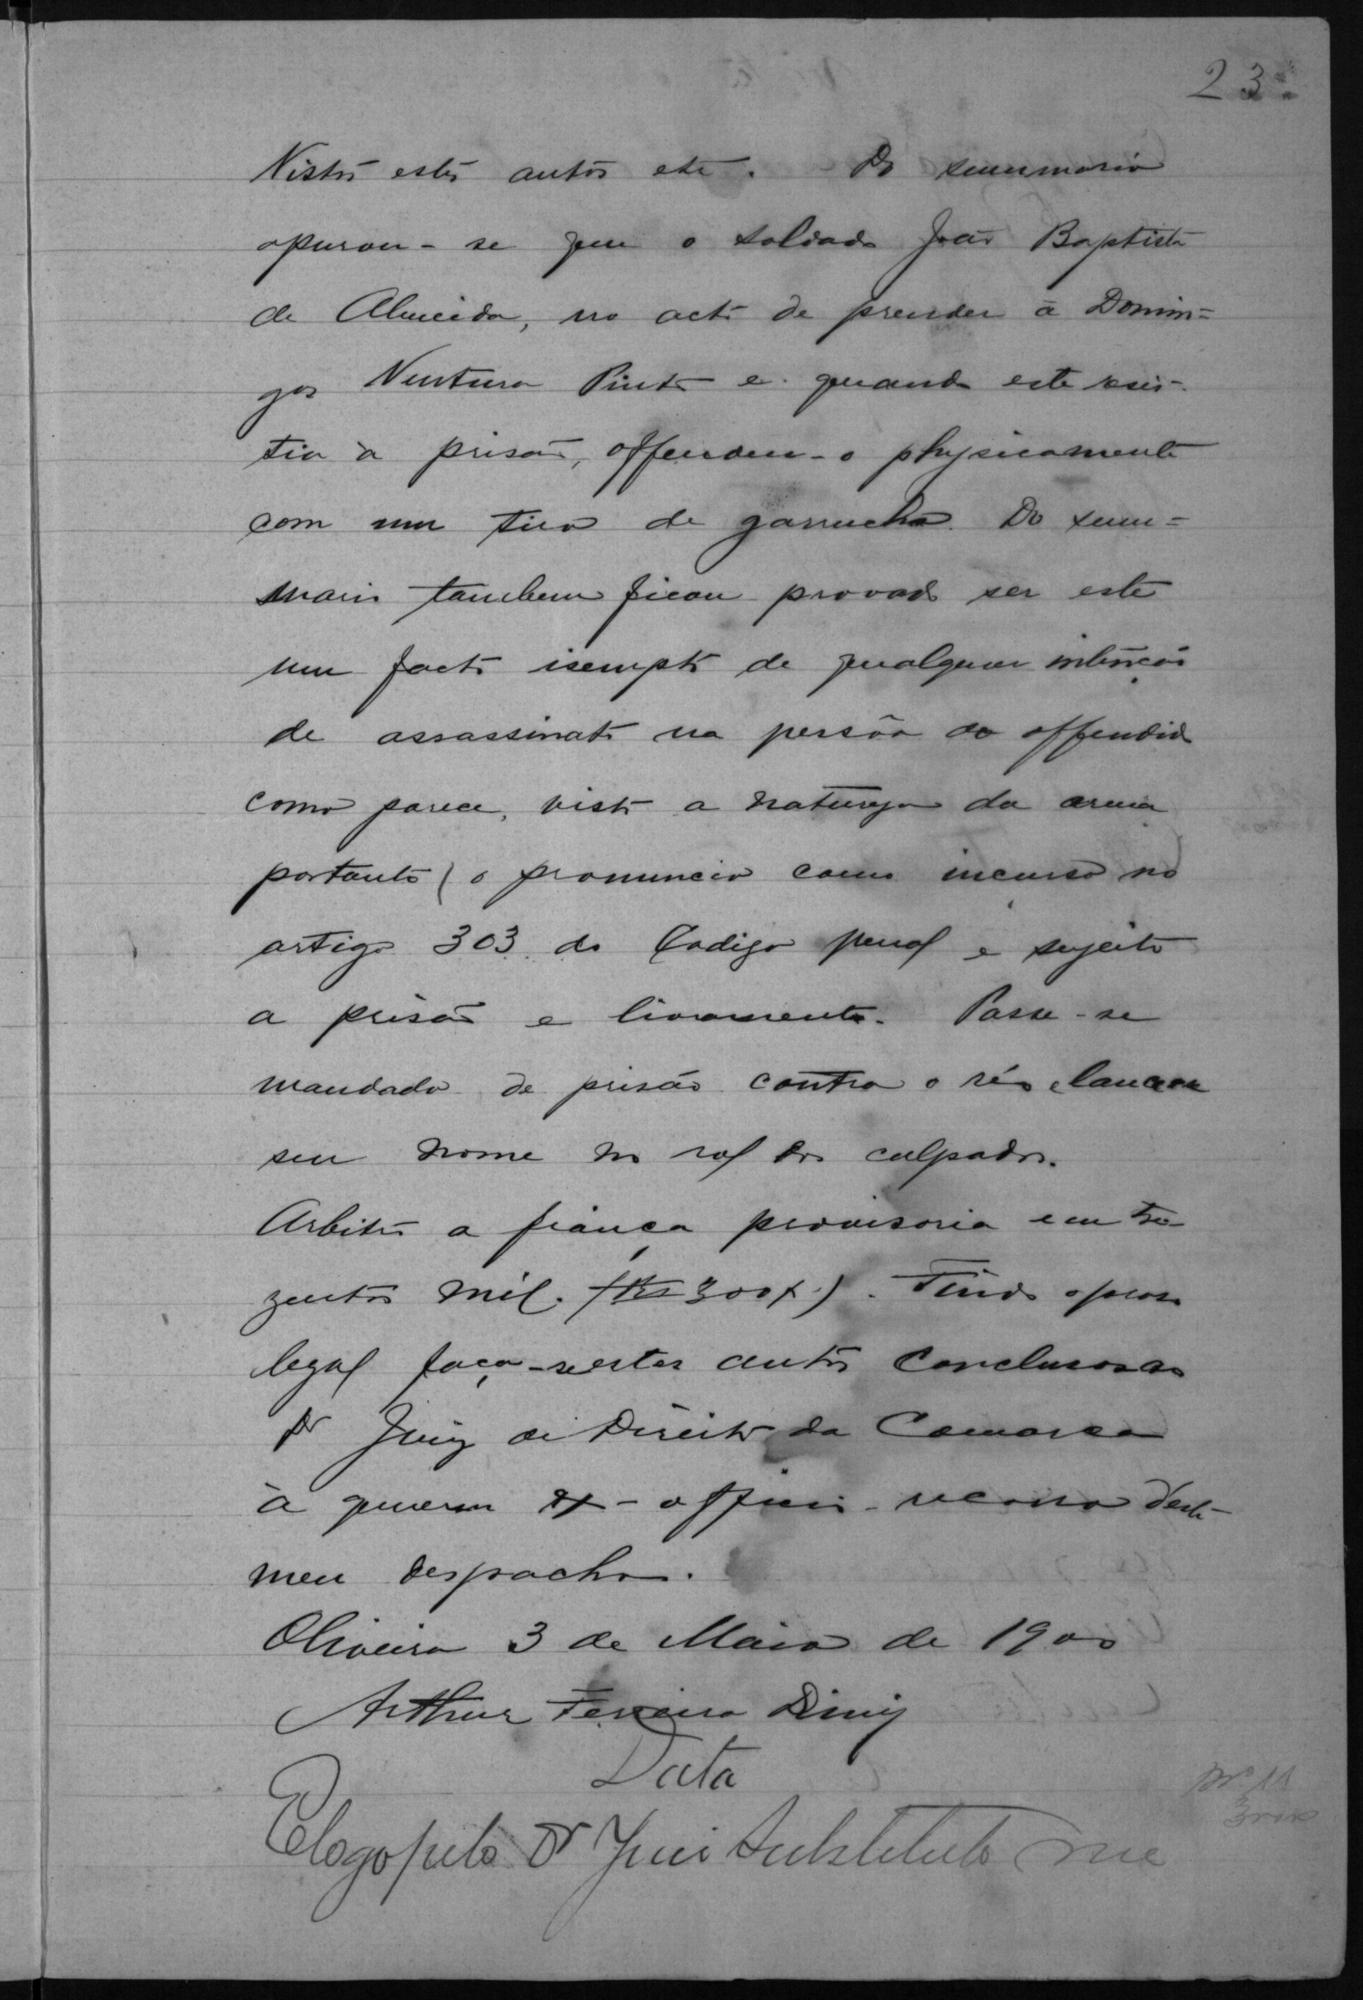 23
Vistos estes autos etc. Do summario
apurou-se que o soldado João Baptista
de Almeida, no acto de prender á Domin=
gos Ventura Pinto e quando este resis-
tia á prisão, offendeu-o physicamente
com um tiro de garrucha. Do sum=
mario tambem ficou provado ser este
um facto isempto de qualquer intenção
de assassinato na pessôa do offendido
como parece, visto a natureza da arma
portanto ( o pronuncio como incurso no
artigo 303 do Codigo penal e sujeito
a prisão e livramento. Passe-se
mandado de prisão contra o réo e lance
seu nome no rol dos culpados.
Arbitro a fiança provisoria em tre
zentos mil. (Rs 300$). Findo o praso
legal faça-se estes autos conclusos ao
Dr Juiz de Direito da Comarca
á quem ex-officio recorro deste
meu despacho.
Oliveira 3 de Maio de 1900
Arthur Ferreira Diniz
Data
E logo pelo Dr Juiz Substituto me